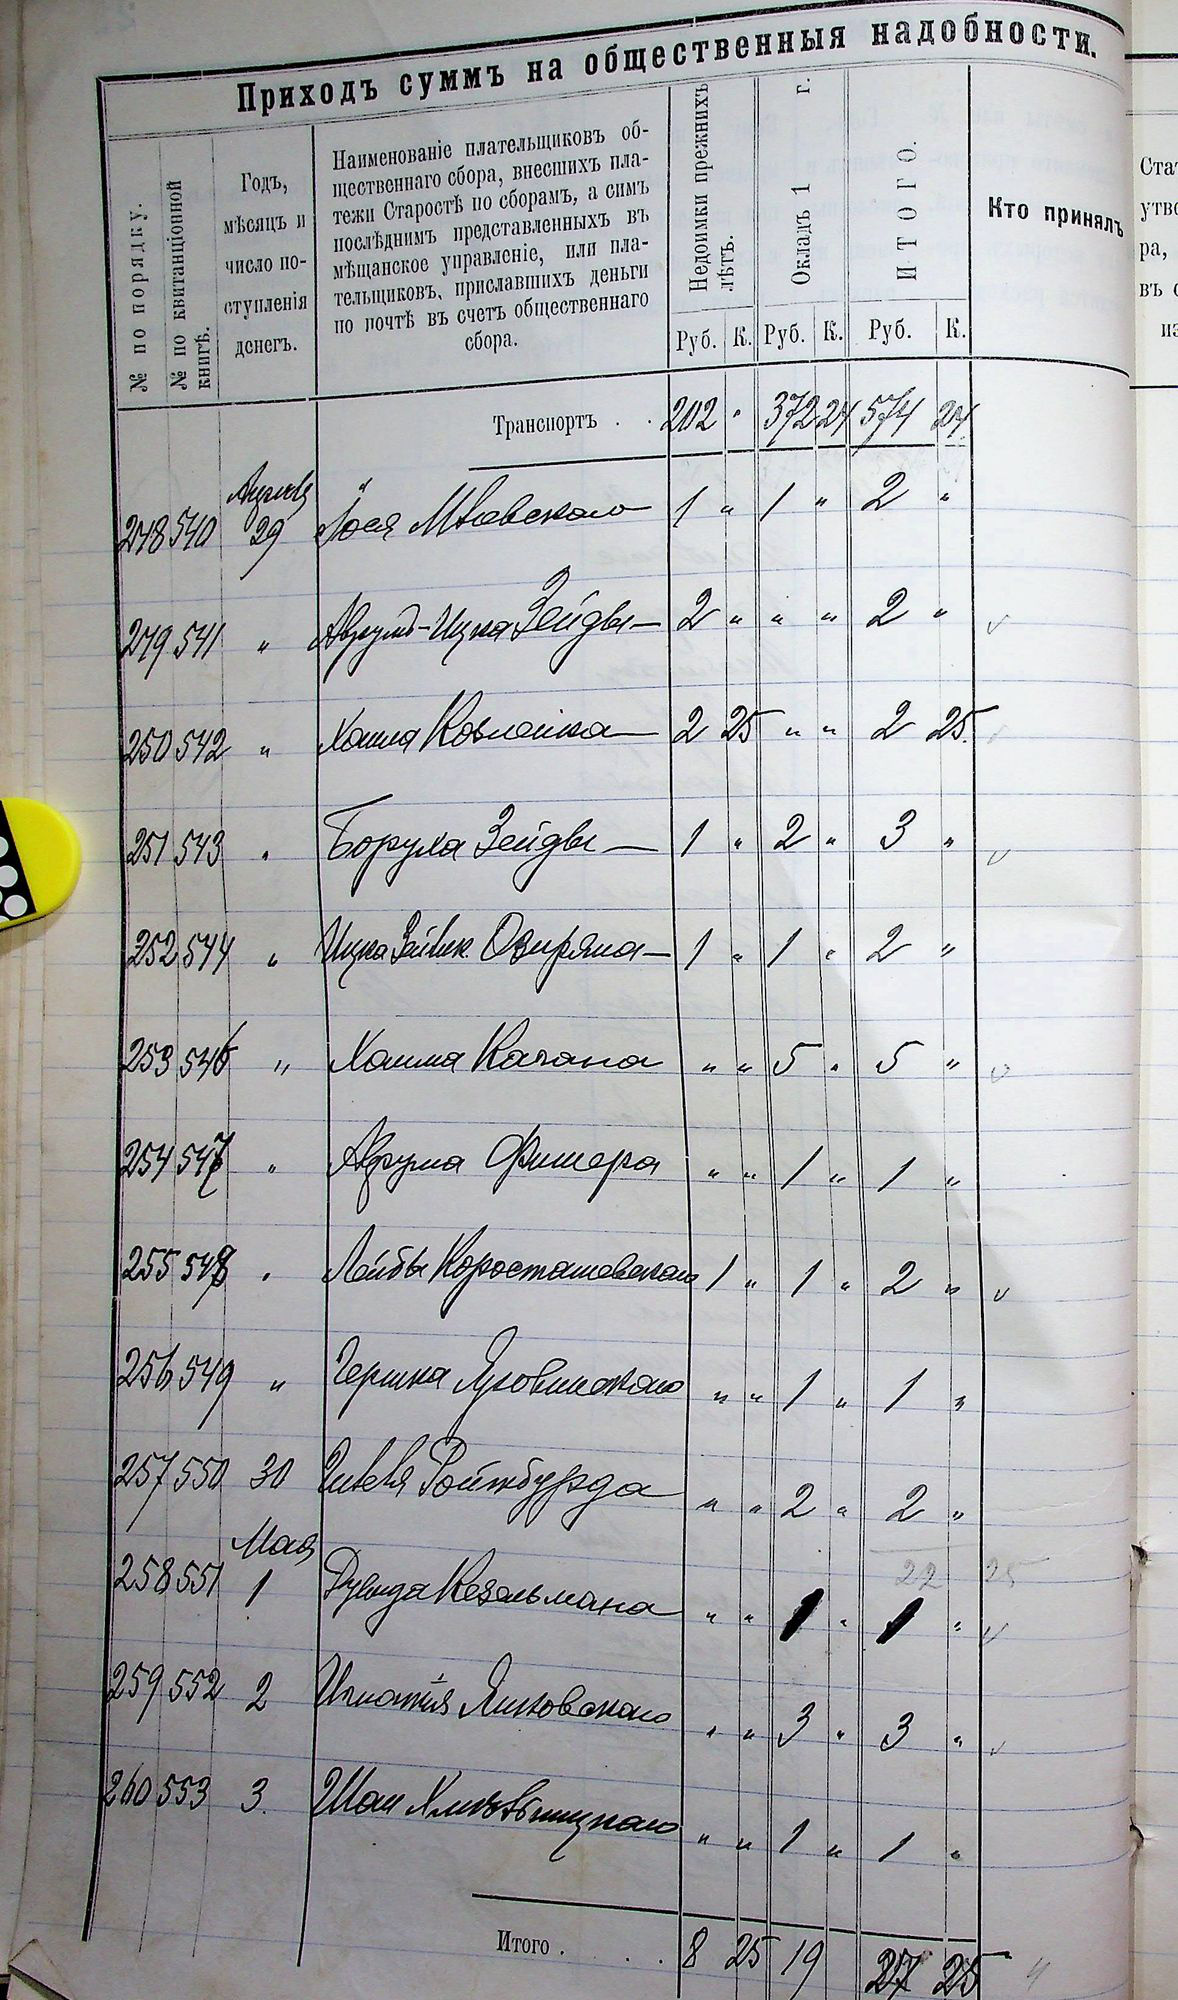 Приходъ суммъ на общественныя надобности.
№ по порядку.
№ по квитанціонной книгѣ.
Годъ,
мѣсяцъ и
число по-
ступленія
денегъ.
Наименованіе плательщиковъ об-
щественнаго сбора, внесшихъ пла-
тежи Старостѣ по сборамъ, а симъ
послѣднимъ представленныхъ въ
мѣщанское управленіе, или пла-
тельщиковъ, приславшихъ деньги
по почтѣ въ счетъ общественнаго
сбора.
Недоимки прежнихъ лѣтъ.
Окладъ 1 г.
ИТОГО.
Кто принялъ
Руб. К. Руб. К. Руб. К.
Транспортъ . . 202 " 372 24 574 24
248 540 29 Іося 1 " 1 " 2 "
249 541 " Аврумъ-Ицка Зейды — 2 " " " 2 "
250 542 " Хаима — 2 25 " " 2 25
251 543 " Боруха Зейды — 1 " 2 " 3 "
252 544 " Ицка Озиряна — 1 " 1 " 2 "
253 546 " Хаима Кагана " " 5 " 5 "
254 547 " Аврума Фишера " " 1 " 1 "
255 548 " Лейбы Коросташевскаго 1 " 1 " 2 "
256 549 " Гершка " " 1 " 1 "
257 550 30 Ройтбурда " " 2 " 2 "
22 25
Мая
258 551 1 Дувида Кезельмана " " 1 " 1 "
259 552 2 Игнатія Янковскаго " " 3 " 3 "
260 553 3. Шаи " " 1 " 1 "
Итого . . . 8 25 19 27 25
Ста
утв
ра,
въ с
из